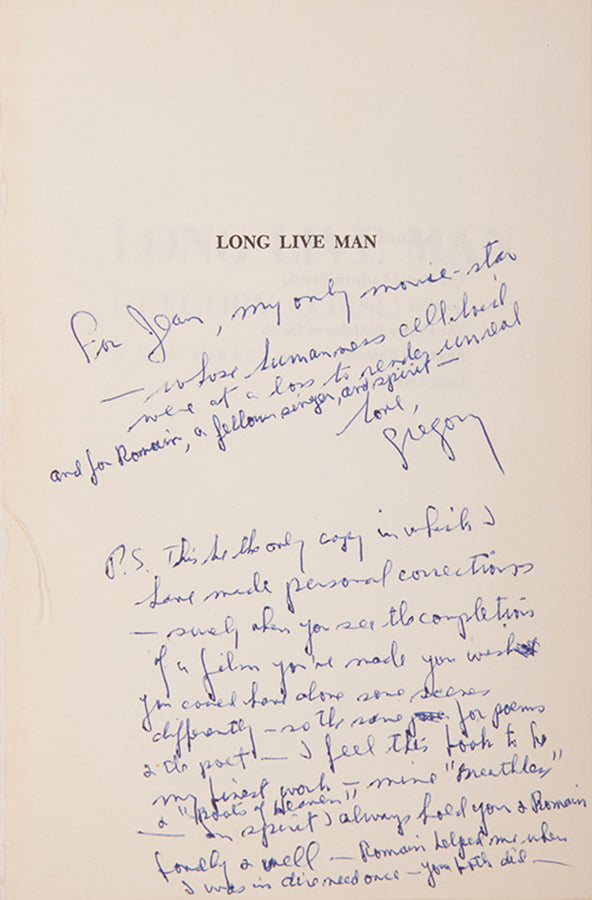 LONG LIVE MAN
For Jean, my only movie-star
— whose humanness celluloid
were at a loss to render unreal
and for Romain, a fellow singer, and spirit —
love,
Gregory
P.S. This be the only copy in which I
have made personal corrections
— surely when you see the completion
of a film you've made you wish
you could have done some scenes
differently — so the same for poems
& the poet — I feel this book to be
my finest work — mine "Breathless"
& "Roots of Heaven"
— in spirit I always hold you & Romain
fondly & well — Romain helped me when
I was in dire need once — you both did —